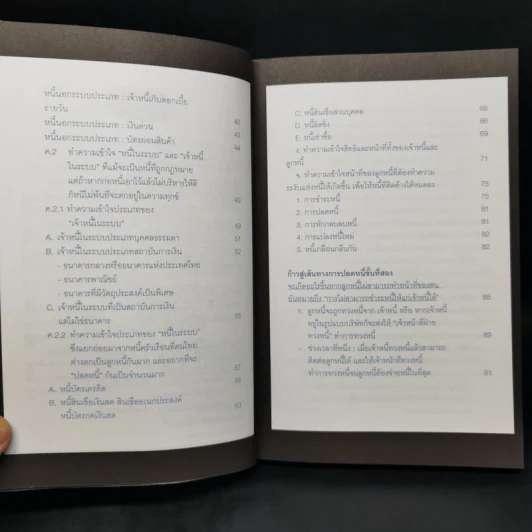 หนี้นอกระบบประเภท : เจ้าหนี้เก็บดอกเบี้ย
รายวัน 42
หนี้นอกระบบประเภท : เงินด่วน 43
หนี้นอกระบบประเภท : บัตรผ่อนสินค้า 44
ค.2 ทำความเข้าใจ "หนี้ในระบบ" และ "เจ้าหนี้
ในระบบ" ที่แม้จะเป็นหนี้ที่ถูกกฎหมาย
แต่ถ้าหากก่อหนี้เอาไว้แล้วไม่บริหารให้ดี
ก็หนีไม่พ้นที่จะตกอยู่ในความทุกข์ 49
ค.2.1 ทำความเข้าใจประเภทของ
"เจ้าหนี้ในระบบ" 49
A. เจ้าหนี้ในระบบประเภทบุคคลธรรมดา 51
B. เจ้าหนี้ในระบบประเภทสถาบันการเงิน 52
- ธนาคารกลางหรือธนาคารแห่งประเทศไทย
- ธนาคารพาณิชย์
- ธนาคารที่มีวัตถุประสงค์เป็นพิเศษ
C. เจ้าหนี้ในระบบที่เป็นสถาบันการเงิน
แต่ไม่ใช่ธนาคาร
ค.2.2 ทำความเข้าใจประเภทของ "หนี้ในระบบ"
ซึ่งแยกย่อยมาจากหนี้ครัวเรือนที่คนไทย
ต่างตกเป็นลูกหนี้กันมาก และอยากที่จะ
"ปลดหนี้" กันเป็นจำนวนมาก 57
A. หนี้บัตรเครดิต
B. หนี้สินเชื่อเงินสด สินเชื่ออเนกประสงค์
หนี้บัตรกดเงินสด 63
C. หนี้สินเชื่อส่วนบุคคล 66
D. หนี้ลิสซิ่ง 68
E. หนี้เช่าซื้อ 69
ง. ทำความเข้าใจสิทธิและหน้าที่ทั้งของเจ้าหนี้และ
ลูกหนี้ 71
จ. ทำความเข้าใจหน้าที่ของลูกหนี้ที่ต้องทำความ
ระงับแห่งหนี้ให้เกิดขึ้น เพื่อให้หนี้ที่ติดค้างได้หมดลง 75
1. การชำระหนี้ 75
2. การปลดหนี้ 81
3. การหักกลบลบหนี้ 81
4. การแปลงหนี้ใหม่ 82
5. หนี้เกลื่อนกลืนกัน 82
ก้าวสู่เส้นทางการปลดหนี้ขั้นที่สอง
จะเกิดอะไรขึ้นหากลูกหนี้ไม่สามารถทำหน้าที่ของตน
อันหมายถึง "การไม่สามารถชำระหนี้ให้แก่เจ้าหนี้ได้" 85
ก. ลูกหนี้จะถูกทวงหนี้จาก เจ้าหนี้ หรือ หากเจ้าหนี้
อยู่ในรูปแบบบริษัทก็จะส่งให้ "เจ้าหน้าที่ฝ่าย
ทวงหนี้" ทำการทวงหนี้ 89
- ช่วงเวลาที่หนึ่ง : เมื่อเจ้าหนี้ทวงหนี้แล้วสามารถ
ติดต่อลูกหนี้ได้ และให้เจ้าหน้าที่ทวงหนี้
ทำการทวงหนี้จนลูกหนี้ต้องจ่ายหนี้ในที่สุด 91